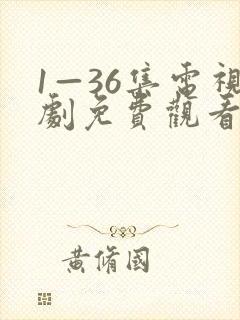 1—36集電視
劇免費觀看
黃脩國